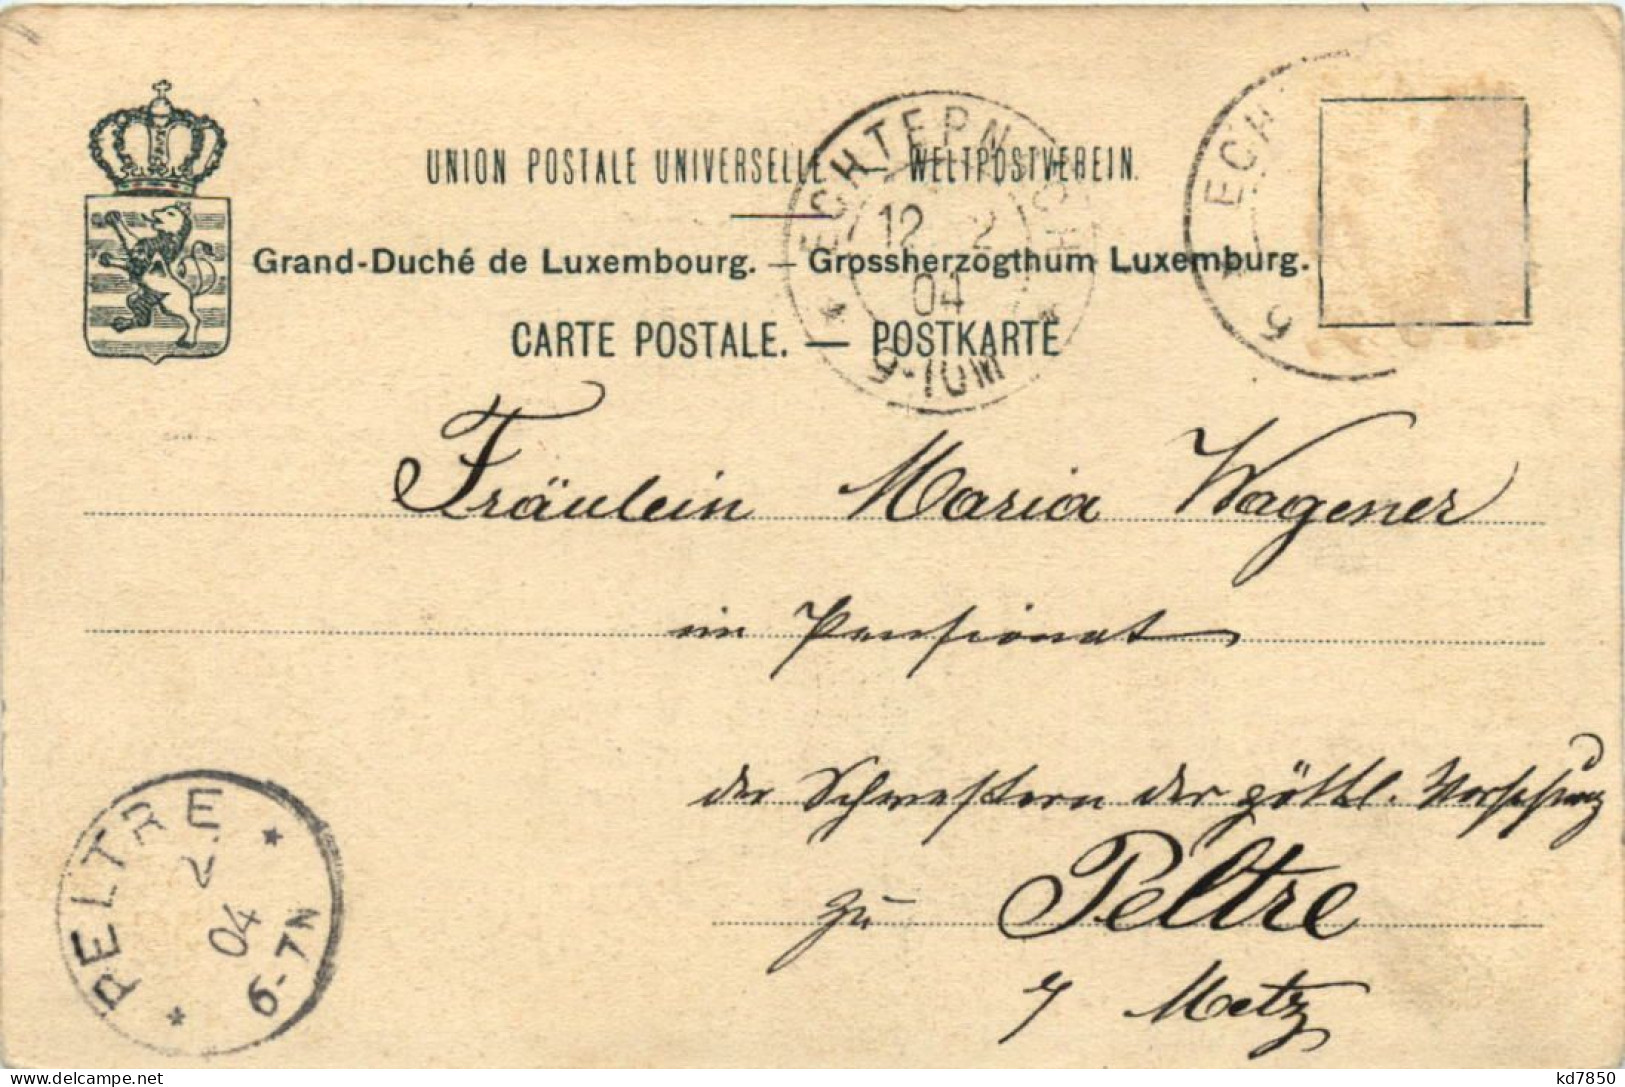 UNION POSTALE UNIVERSELLE. — WELTPOSTVEREIN.
Grand-Duché de Luxembourg. — Grossherzogthum Luxemburg.
CARTE POSTALE. — POSTKARTE
ECHTERNACH
12 2
04
9-10M
ECH
Fräulein Maria Wagener
im Pensionat
der Schwestern der göttl. Vorsehung
zu Peltre
Metz
PELTRE
2
04
6-7N
kd7850